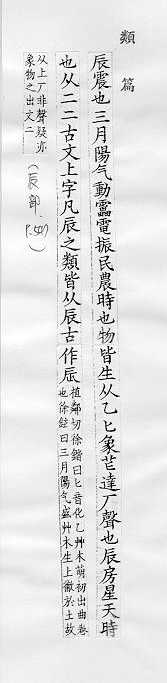 類篇
辰震也三月陽气動靁電振民農時也物皆生从乙匕象芒達厂聲也辰房星天時
也从二二古文上字凡辰之類皆从辰古作𠨷
植鄰切徐鍇曰匕音化乙艸木萌初出曲卷
也徐鉉曰三月陽气盛艸木生上徹於土故
从上厂非聲疑亦
象物之出文二
(辰部,